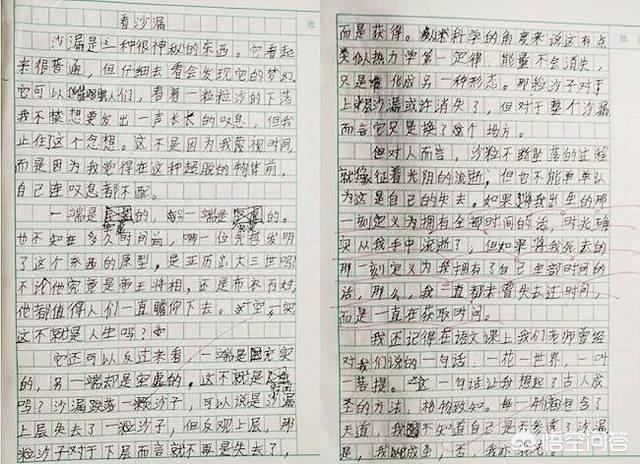 看沙漏
沙漏是一种很神秘的东西。它看起
来很普通，但仔细去看会发现它的梦幻。
它可以催眠人们，看着一粒粒沙的下落
我不禁想要发出一声长长的叹息，但我
止住了这个念想。这不是因为我蔑视时间，
而是因为我觉得在这种超脱的物体前，
自己连叹息都不配。
一端是的，另一端是的。
也不知在多久时间前，哪一位先哲发明
了这个东西的原型，是亚历山大三世吗？
不论他究竟是帝王将相，还是布衣百姓，
他都值得人们一直瞻仰下去。一空一实
这不就是人生吗？
它还可以反过来看，一端是充实
的，另一端却是空虚的。这不就是
吗？沙漏跌落一颗沙子，可以说是沙漏
上层失去了一粒沙子，但反观上层，那
粒沙子对于下层而言就不再是失去了，
而是获得。从科学的角度来说这有点
类似热力学第一定律，能量不会消失，
只是化成另一种形态。那粒沙子对于
上层沙漏或许消失了，但对于整个沙漏
而言它只是换了个地方。
但对人而言，沙粒不断坠落的过程
就像征着光阴的流逝，但也不能单单认
为这是自己的失去。如果将我出生的那
一刻定义为拥有全部时间的话，时光确
实从我手中流逝了，但如果将我死去的
那一刻定义为我拥有了自己全部时间的
话，那么，我一直都未曾失去过时间，
而是一直在获取时间。
我还记得在语文课上我们老师曾经
对我们说的一句话，一花一世界，一叶
一菩提。这一句话让我想起了古人成
圣的方法，格物致知。每一物都包含了
天道，我不知道自己是否参透了沙漏，
是，我如成圣，否，我亦
悟空问答